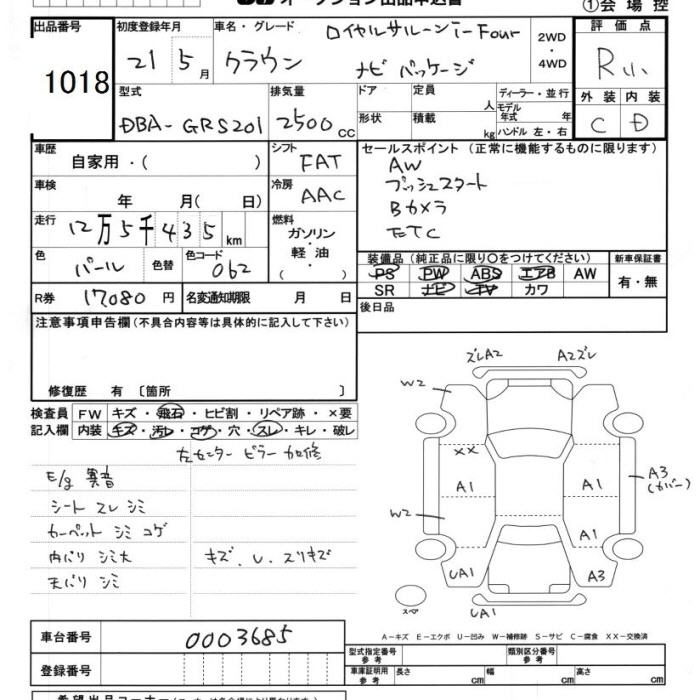 ①会場控
出品番号 初度登録年月 車名・グレード ロイヤルサルーン i-Four 2WD ・ 4WD 評価点
1018 21 5月 クラウン ナビパッケージ R
型式 排気量 ドア 定員 人 ディーラー・並行 外装 内装
DBA-GRS201 2500cc 形状 積載 kg モデル年式 年 ハンドル 左・右 C D
車歴 自家用・( ) シフト FAT セールスポイント (正常に機能するものに限ります)
車検 年 月( 日) 冷房 AAC AW
プッシュスタート
Bカメラ
ETC
走行 12万5千435km 燃料 ガソリン・軽油・( )
色 パール 色替 色コード 062
装備品 (純正品に限り〇をつけてください) 新車保証書
PS PW ABS エアB AW 有・無
SR ナビ TV カワ
R券 17080円 名変通知期限 月 日 後日品
注意事項申告欄(不具合内容等は具体的に記入して下さい)
修復歴 有 〔箇所 〕
検査員 FW キズ・飛石・ヒビ割・リペア跡・×要
記入欄 内装 キズ・汚レ・コゲ・穴・スレ・キレ・破レ
左センターピラー加修
E/g 異音
シート スレ シミ
カーペット シミ コゲ
内バリ シミ大 キズ、U、スリキズ
天バリ シミ
ズレA2 A2ズレ
W2
XX
A1 A1 A3
(カバー)
W2 A1
UA1 A3
スペア UA1
A-キズ E-エクボ U-凹み W-補修跡 S-サビ C-腐食 XX-交換済
車台番号 0003685
型式指定番号 参考 類別区分番号 参考
登録番号 車庫証明用 参考 長さ cm 幅 cm 高さ cm